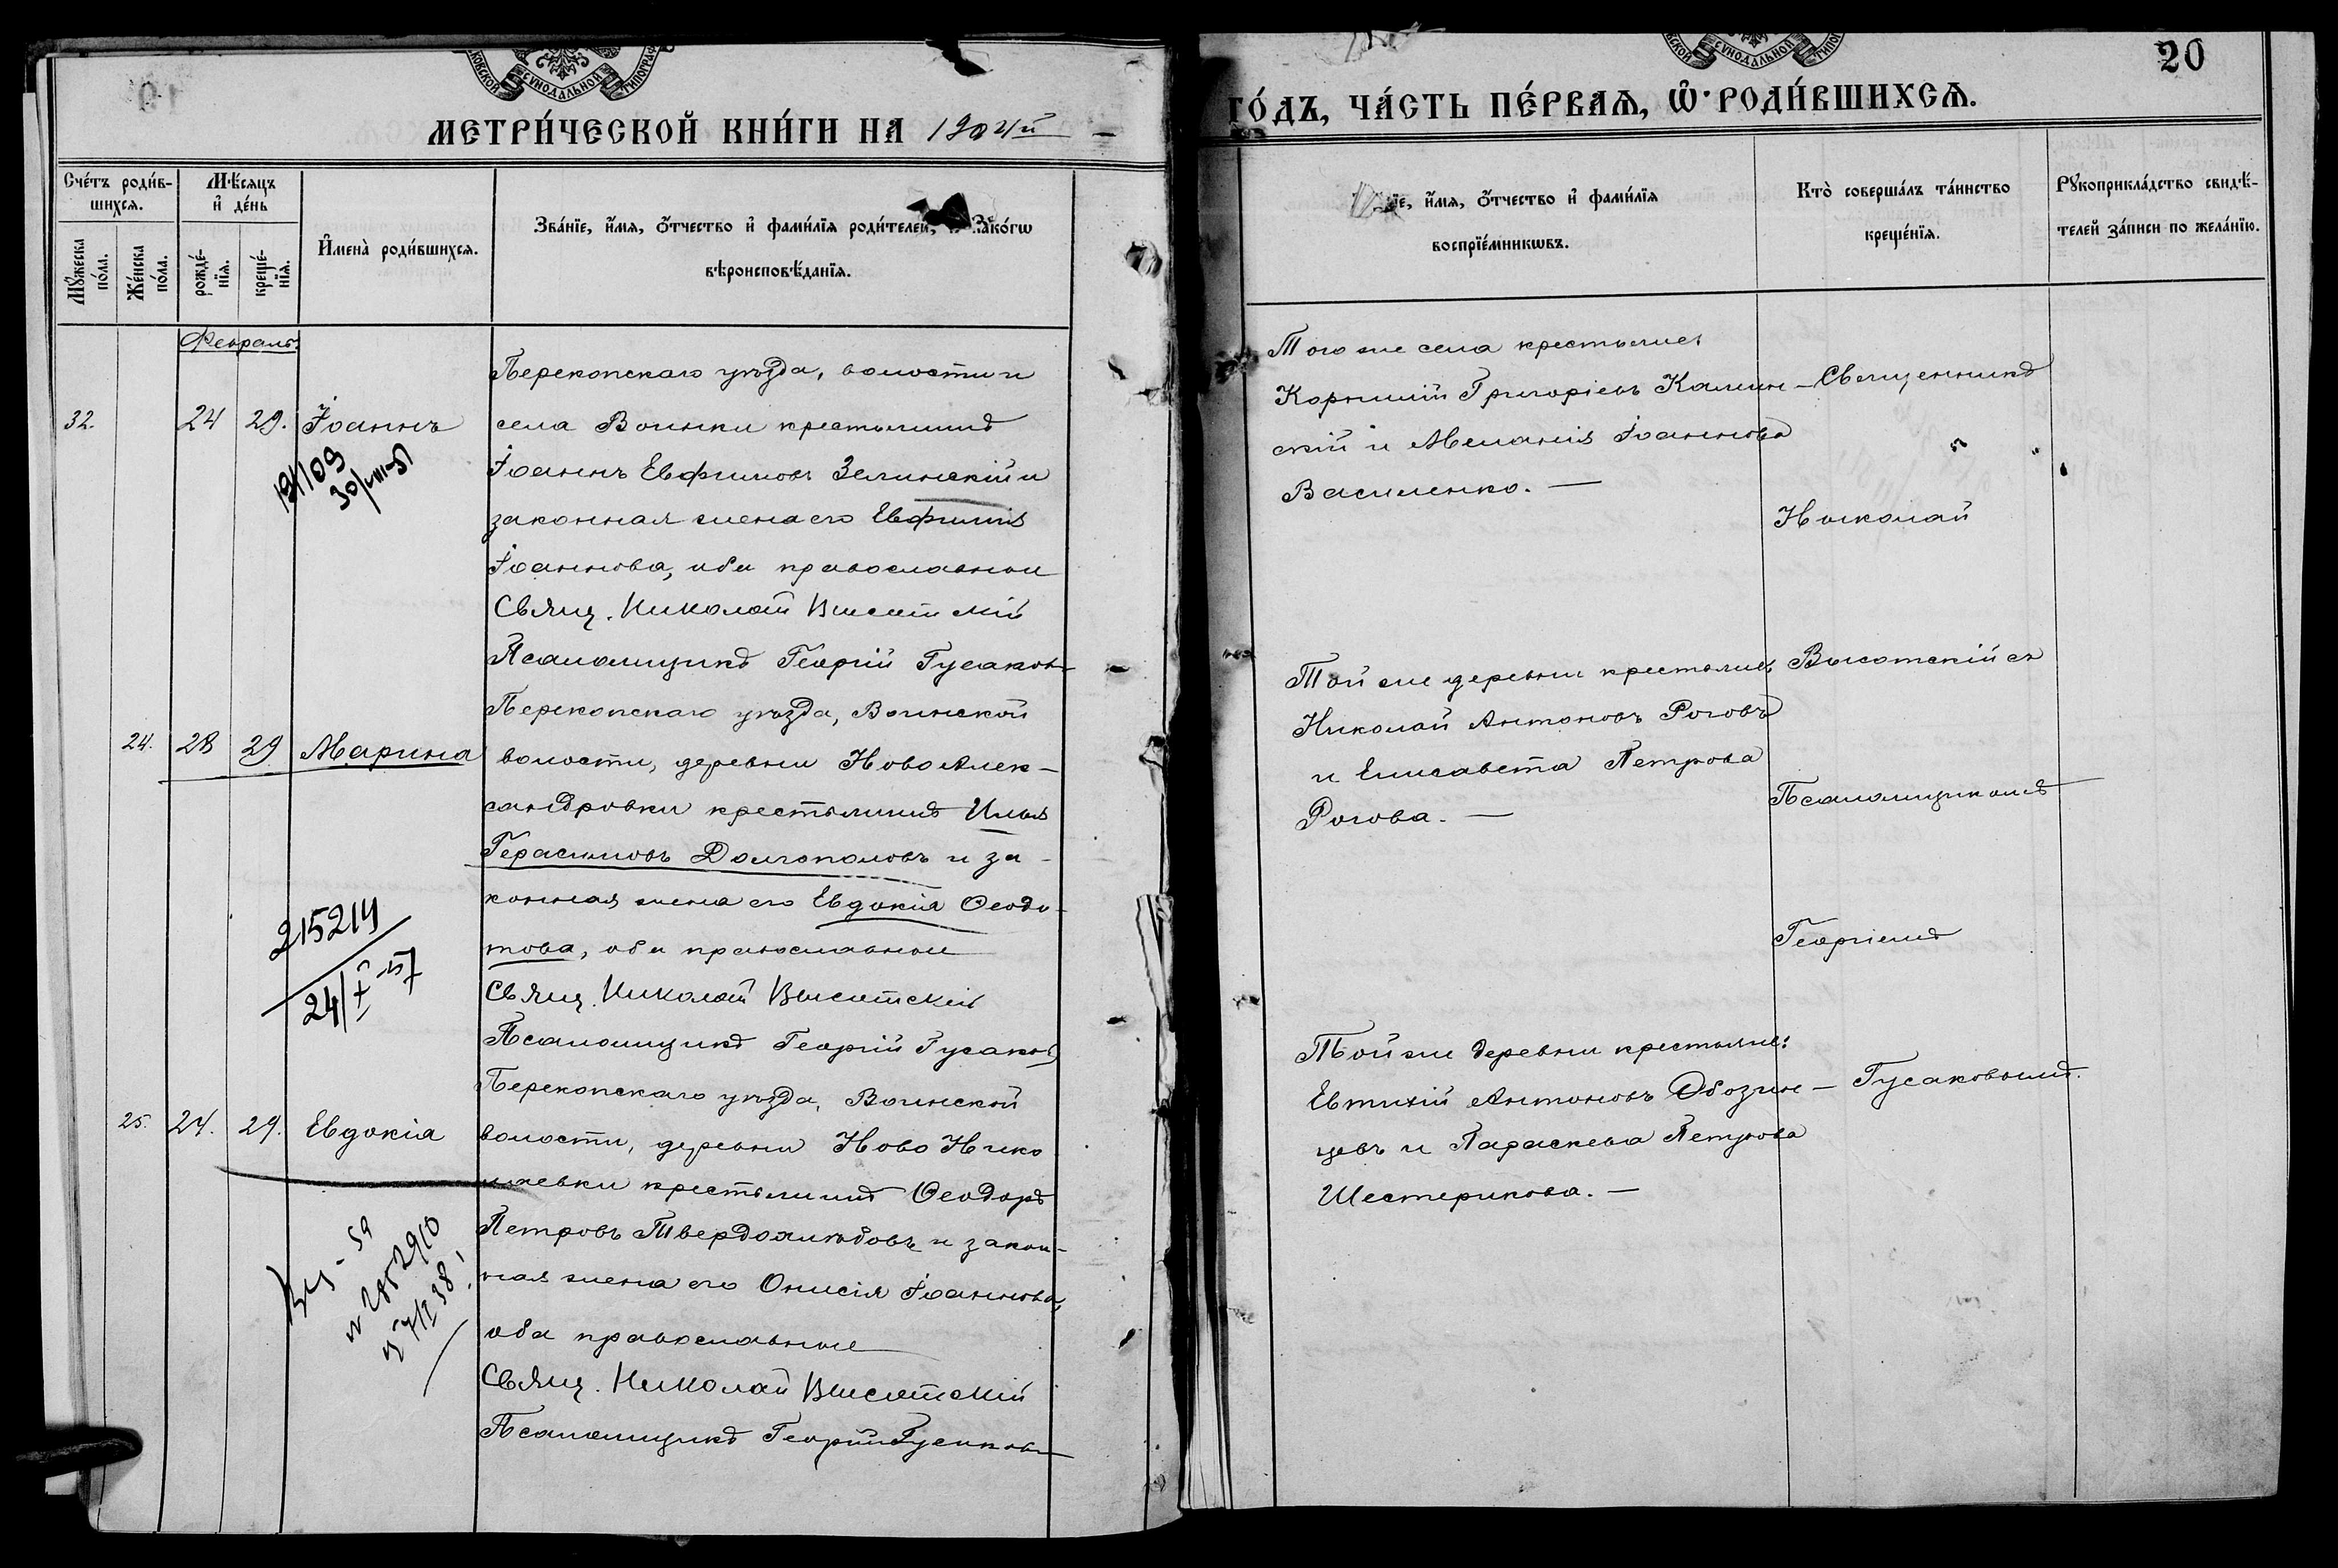 МЕТРИ́ЧЕСКОЙ КНИ́ГИ НА 1904й
Сче́тъ роди́в-
шихся.
Мѣ́сяцъ
и҆ де́нь
Мꙋ́жеска
по́ла.
Же́нска
по́ла.
рожде́-
нїя.
креще́-
нїя.
И҆мена̀ роди́вшихся.
Зва́нїе, и҆́мя, ѻ҆́тчество и҆ фами́лїя роди́телей, како́гѡ
вѣроисповѣ́данїя.
Февраль
Перекопскаго уѣзда, волости и
32. 24 29. Іоаннъ села Воинки крестьянинъ
Іоаннъ Евфимовъ Зелинскій и
законная жена его Евфимія
Іоаннова, оба православные
Свящ. Николай Высотскій
Псаломщикъ Георгій Гусаковъ
Перекопскаго уѣзда, Воинской
24. 28 29 Марина волости, деревни Ново Алек-
сандровки крестьянинъ Илья
Герасимовъ Долгополовъ и за-
конная жена его Евдокія Ѳеодо-
това, оба православные
215214
24/X-57
Свящ. Николай Высотскій
Псаломщикъ Георгій Гусаковъ
Перекопскаго уѣзда, Воинской
25. 24. 29. Евдокія волости, деревни Ново Нико
лаевки крестьянинъ Ѳеодоръ
Петровъ Твердохлѣбовъ и закон-
ная жена его Онисія Іоаннова,
оба православные
Свящ. Николай Высотскій
Псаломщикъ Георгій Гусаковъ
20
ГО́ДЪ, ЧА́СТЬ ПЕ́РВАЯ, Ѡ҆ РОДИ́ВШИХСЯ.
їе, и҆́мя, ѻ҆́тчество и҆ фами́лїя
воспрїе́мникѡвъ.
Кто̀ соверша́лъ та́инство
креще́нїя.
Рꙋкоприкла́дство свидѣ́-
телей за́писи по жела́нїю.
Того же села крестьяне:
Корнилій Григоріевъ Калин-
скій и Меланія Іоаннова
Василенко. —
Священникъ
Николай
Той же деревни крестьяне:
Николай Антоновъ Роговъ
и Елисавета Петрова
Рогова. —
Высотскій съ
Псаломщикомъ
Георгіемъ
Той же деревни крестьяне:
Евтихій Антоновъ Обозин-
цевъ и Параскева Петрова
Шестерикова. —
Гусаковымъ.